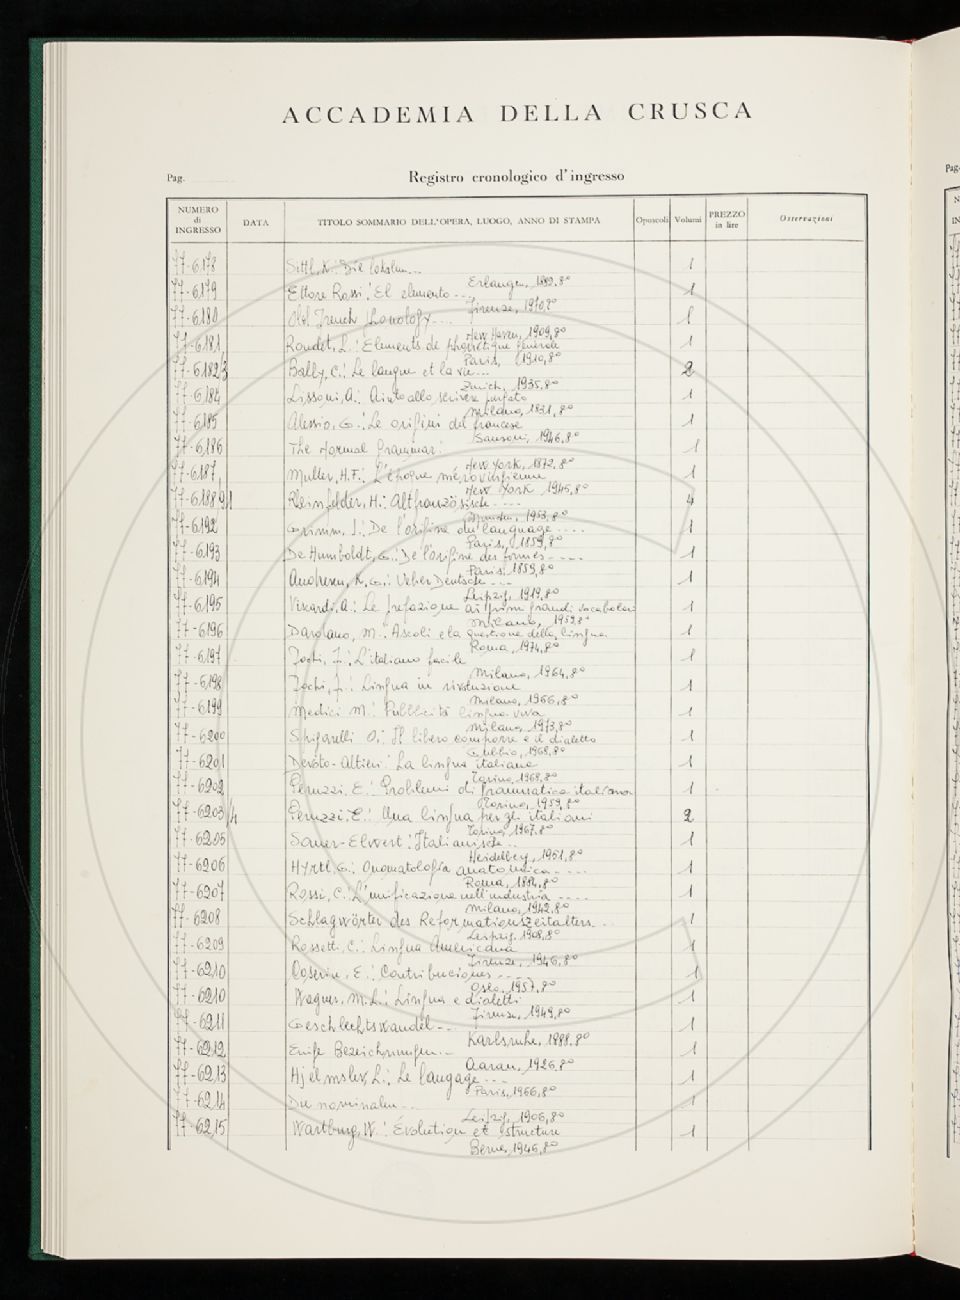 ACCADEMIA DELLA CRUSCA
Pag.
Registro cronologico d'ingresso
NUMERO di INGRESSO DATA TITOLO SOMMARIO DELL'OPERA, LUOGO, ANNO DI STAMPA Opuscoli Volumi PREZZO in lire Osservazioni
77-6178 Sittl, K.: Die lokalen... 1
Erlangen, 1882, 8°
77-6179 Ettore Rossi: El elemento... 1
Firenze, 1970, 8°
77-6180 Old French Phonology.... 1
New Haven, 1909, 8°
77-6181 Roudet, L.: Elements de phonétique générale 1
Paris, 1910, 8°
77-6182/3 Bally, C.: Le langue et la vie... 2
Zurich, 1935, 8°
77-6184 Lissoni, A.: Aiuto allo scrivere purgato 1
Milano, 1831, 8°
77-6185 Alessio, G.: Le origini del francese 1
Sansoni, 1946, 8°
77-6186 The Normal Grammar: 1
New York, 1872, 8°
77-6187 Muller, H.F.: L'époque mérovingienne 1
New York 1945, 8°
77-6188 9/1 Kleinfelder, H.: Altfranzösische.... 4
1953, 8°
77-6192 Grimm, J.: De l'origine du language.... 1
Paris, 1859, 8°
77-6193 De Humboldt, G.: De l'origine des formes.... 1
Paris, 1859, 8°
77-6194 Andresen, K.G.: Ueber Deutsche.... 1
Leipzig, 1919, 8°
77-6195 Viscardi, A.: Le prefazione ai primi grandi vocabolari 1
Milano, 1959, 8°
77-6196 Dardano, M.: Ascoli e la questione della lingua. 1
Roma, 1974, 8°
77-6197 Fochi, F.: L'italiano facile 1
Milano, 1964, 8°
77-6198 Fochi, F.: Lingua in rivoluzione 1
Milano, 1966, 8°
77-6199 Medici M.: Pubblicità lingua viva 1
Milano, 1973, 8°
77-6200 Spigarelli O.: Il libero comporre e il dialetto 1
Gubbio, 1968, 8°
77-6201 Devoto-Altieri: La lingua italiana 1
Torino, 1968, 8°
77-6202 Peruzzi, E.: Problemi di grammatica italiana 1
Torino, 1959, 8°
77-6203/4 Peruzzi, E.: Una lingua per gli italiani 2
Torino, 1967, 8°
77-6205 Sauer-Elwert: Italianische... 1
Heidelberg, 1951, 8°
77-6206 Hyrtl, G.: Onomatologia anatomica.... 1
Roma, 1884, 8°
77-6207 Rossi, C.: L'unificazione nell'industria.... 1
Milano, 1942, 8°
77-6208 Schlagwörter des Reformationszeitalters... 1
Leipzig, 1908, 8°
77-6209 Rossetti, C.: Lingua Americana 1
Firenze, 1946, 8°
77-6210 Coseriu, E.: Contribuciones.... 1
Oslo, 1957, 8°
77-6210 Wagner, M.L.: Lingua e dialetti 1
Firenze, 1949, 8°
77-6211 Geschlechtswandel... 1
Karlsruhe, 1888, 8°
77-6212 Einige Bezeichnungen... 1
Aarau, 1926, 8°
77-6213 Hjelmslev, L.: Le langage... 1
Paris, 1966, 8°
77-6214 Die nominalen... 1
Leipzig, 1906, 8°
77-6215 Wartburg, W.: Évolution et structure 1
Berne, 1946, 8°